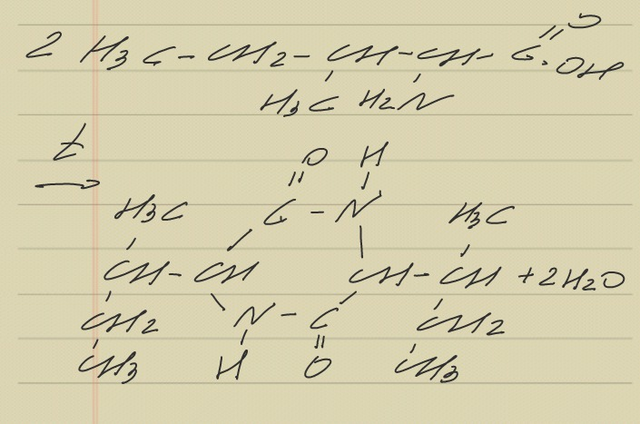 2 H3C-CH2-CH-CH-C=O
OH
H3C H2N
t
→
O H
H3C C-N H3C
CH-CH CH-CH + 2H2O
CH2 N-C CH2
CH3 H O CH3